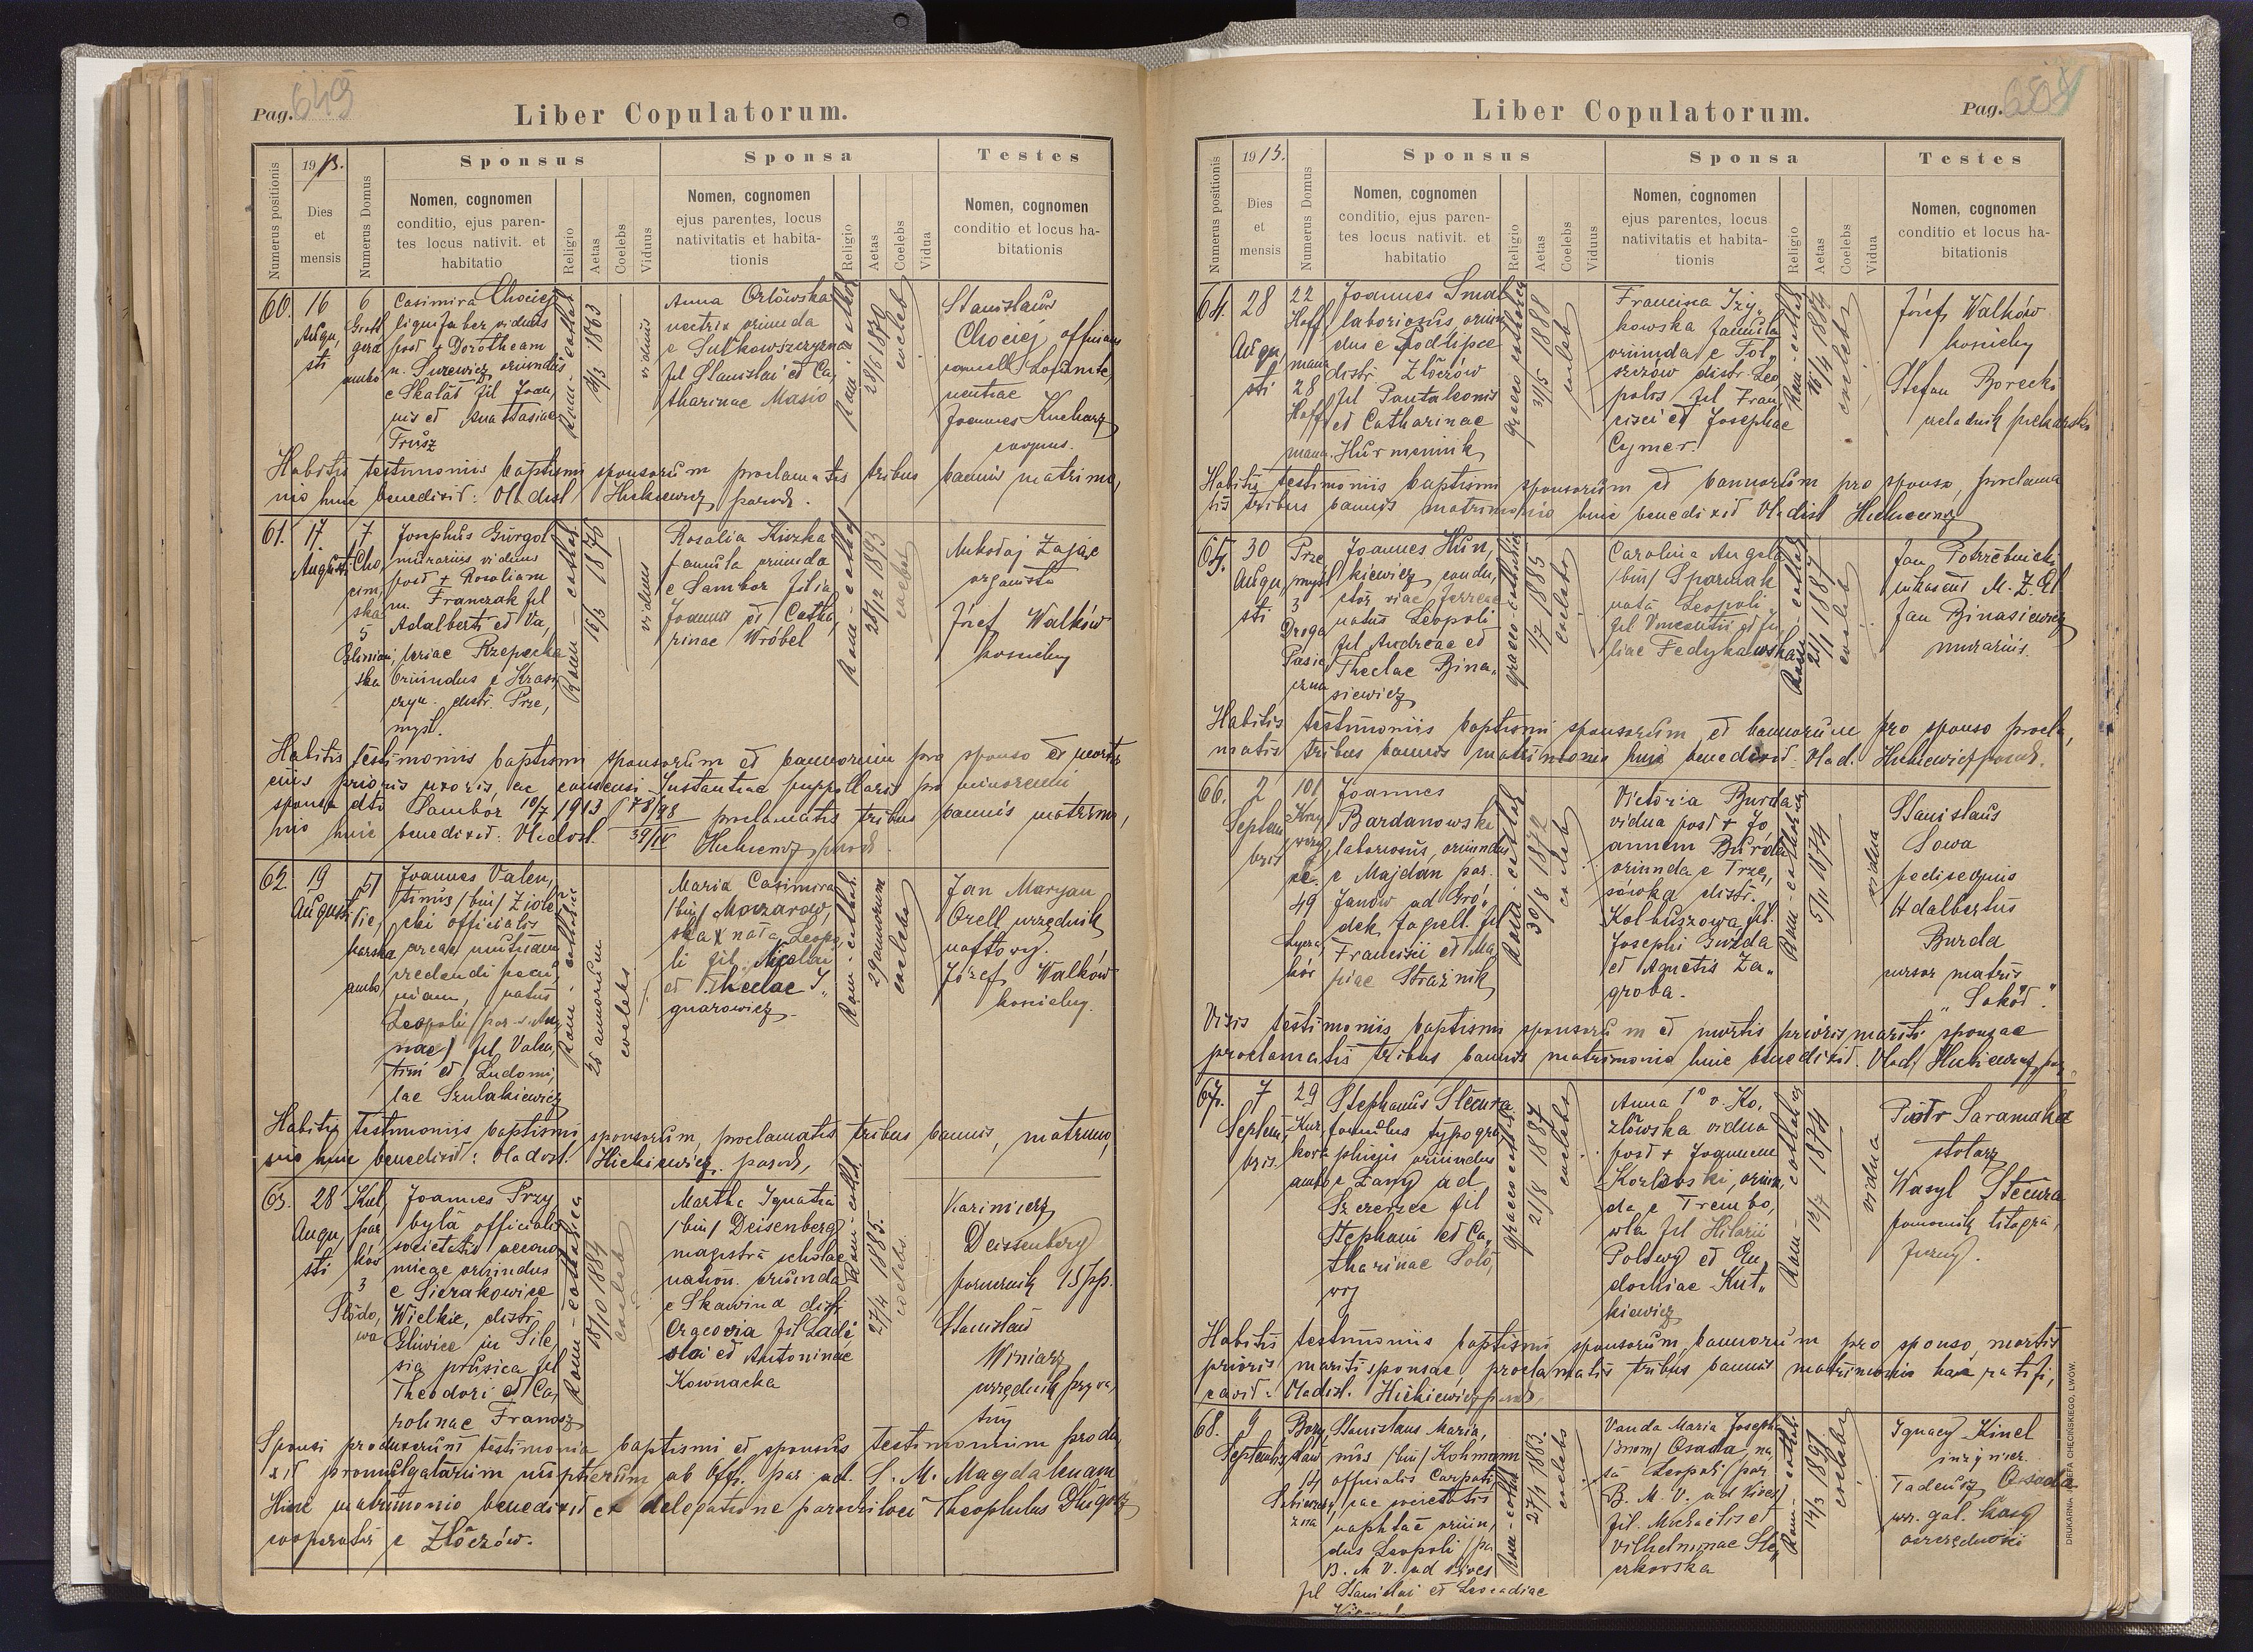 Pag. 649
Liber Copulatorum.
Numerus positionis
1913.
Dies
et
mensis
Numerus Domus
Sponsus
Nomen, cognomen
conditio, ejus paren-
tes locus nativit. et
habitatio
Religio
Aetas
Coelebs
Viduus
Sponsa
Nomen, cognomen
ejus parentes, locus
nativitatis et habita-
tionis
Religio
Aetas
Coelebs
Vidua
Testes
Nomen, cognomen
conditio et locus ha-
bitationis
60. 16
Augu,
sti
6
ambo
Casimirus Chociej
lignifaber viduus
post + Dorotheam
oriundus
e Skałat fil Joan,
nis et Anastasiae
Frusz
Rom-cathol
4/3 1863
viduus
Anna Orłowska
oriunda
fil Stanislai et Ca,
tharinae Masio
Rom-cathol
28/6 1870
coelebs
Stanisław
Chociej
Joannes Kucharz
Habitis testimoniis baptismi sponsorum proclamatis tribus bannis matrimo,
nio huic benedixit: Vladisl Hickiewicz paroch.
61. 17
Augusti
7
Cho,
cim,
ska
5
Gliniań,
ska
Josephus Gurgol
murarius viduus
post + Rosaliam
n. Franczak fil
Adalberti et Va,
leriae Rzepecka
oriundus e Krasi
czyn distr. Prze,
myśl.
Rom-cathol
16/3 1870
viduus
Rosalia Kiszka
famula oriunda
e Sambor filia
Joannis et Catha,
rinae Wróbel
Rom-cathol
25/12 1893
coelebs
Mikołaj Zając
organista
Józef Walków
kościelny
Habitis testimoniis baptismi sponsorum et bannorum pro sponso et mortis
eius prioris uxoris, ac consensu Instantiae pupillaris pro minorenni
sponsa dto Sambor 10/7 1913 proclamatis tribus bannis matrimo,
nio huic benedixit: Vladisl. Hickiewicz paroch.
62. 19
Augusti
51
ambo
Joannes Valen,
tinus /bin/ Ziole
cki officialis
natus
Leopoli
fil Valen,
tini et Ludomi,
lae Szulakiewicz
Rom-catholic
25 annorum
coelebs
Maria Casimira
/bin/
ska nata Leopo
li fil Nicolai
et Theclae I,
gnarowicz
Rom-cathol.
29 annorum
coelebs
Jan Maryan
Orell urzędnik
naftowy.
Józef Walków
kościelny.
Habitis testimoniis baptismi sponsorum, proclamatis tribus bannis, matrimo,
nio huic benedixit: Vladisl. Hickiewicz paroch,
63. 28
Augu
sti
Kul
par,
ków
3
Joannes Przy
była officialis
societatis oecono
micae oriundus
e Sierakowice
Wielkie, distr.
Gliwice in Sile,
sia prusica fil
Theodori et Ca,
rolinae Franosz
Rom-catholica
18/10 1884
coelebs
Martha Ignatia
/bin/ Deisenberg
magistra scholae
nation. oriunda
e Skawina distr
Cracovia fil Ladi
slai et Antoninae
Kownacka
Rom-cathol
27/4 1885.
coelebs.
Kazimierz
Deissenberg
porucznik 15 pp.
Stanisław
Winiarz
urzędnik prywa,
tny
Sponsi produxerunt testimonia baptismi et sponsus testimonium produ
xit promulgatarum nuptiarum ab Off. par ad. S. M. Magdalenam
Huic matrimonio benedixit ex delegatione parochi loci Theophilus Długosz
cooperator e Złoczów.
Liber Copulatorum.
Pag.
Numerus positionis
1913.
Dies
et
mensis
Numerus Domus
Sponsus
Nomen, cognomen
conditio, ejus paren-
tes locus nativit. et
habitatio
Religio
Aetas
Coelebs
Viduus
Sponsa
Nomen, cognomen
ejus parentes, locus
nativitatis et habita-
tionis
Religio
Aetas
Coelebs
Vidua
Testes
Nomen, cognomen
conditio et locus ha-
bitationis
64. 28
Augu,
sti
22
Hoff
mana
28
Hoff
mana.
Joannes Smal
laboriosus oriun
dus e Podlipce
distr. Złoczów
fil Pantaleonis
et Catharinae
Hurminnik
graeco catholica
31/5 1888
coelebs
Francisca Izy,
kowska famula
oriunda e Toł,
szczów distr. Leo
polis fil Fran
cisci et Josephae
Cymer.
Rom-cathol
coelebs
Józef Walków
kościelny
Stefan Borecki
czeladnik piekarski
Habitis testimoniis baptismi sponsorum et bannorum pro sponso, proclama
tis tribus bannis matrimonio huic benedixit Vladisl Hickiewicz
65. 30
Augu,
sti
Prze
mysł
3
Droga
Pasie
czna
Joannes Hun,
kiewicz condu,
ctor viae ferreae
natus Leopoli
fil Andreae et
Theclae Bina,
siewicz
graeco-catholic
1/7 1885
coelebs
Carolina Angela
/bin/ Sparniak
nata Leopoli
fil Vincentii et Ju
liae Fedykowska
Rom-cathol
21/1 1887
coelebs
Jan Potrzebnicki
inkasent M. Z. El
Jan Binasiewicz
murarius.
Habitis testimoniis baptismi sponsorum et bannorum pro sponso procla,
matis tribus bannis matrimonio huic benedixit. Vlad. Hickiewicz paroch.
66. 2
Septem
bris
101
49
Łycza,
ków
Joannes
Bardanowski
laboriosus, oriundus
e Majdan par.
Janów ad Gró,
dek Jagell. fil
Francisci et Ma,
riae Strażnik
Rom-cathol
30/8 1872
coelebs
Victoria Burda
vidua post + Jo
annem Burda
oriunda e Trzę,
sówka distr.
Kolbuszowa fil.
Josephi Guzda
et Agnetis Za,
groba.
Rom-catholica
5/11 1874
vidua
Stanislaus
Sowa
pedisequus
Adalbertus
Burda
cursor matris
"Sokół".
Visis testimoniis baptismi sponsorum et mortis prioris mariti sponsae
proclamatis tribus bannis matrimonio huic benedixit. Vlad. Hickiewicz par.
67. 7
Septem,
bris.
29
Kur
kowa
ambo
Stephanus Stecura
famulus typogra
phiejs oriundus
e Łany ad
Szczerzec fil
Stephani et Ca,
tharinae Soło,
wij
graeco cathol
21/8 1887
coelebs
Anna 1° v. Ko,
złowska vidua
post + Joannem
Kozłowski, oriun,
da e Trembo,
wla fil Hilarii
Połowy et Eu
dochiae Kut,
kiewicz
Rom-cathol
13/7 1874
vidua
Piotr Saramaka
stolarz
Wasyl Stecura
pomocnik litogra,
ficzny.
Habitis testimoniis baptismi sponsorum, bannorum pro sponso, mortis
prioris mariti sponsae, proclamatis tribus bannis matrimonio hac ratifi,
cavit: Vladisl. Hickiewicz paroch.
68. 9
Septembris
Bogy,
daw
Stanislaus Maria,
nus /bin/ Kohmann
officialis Carpati
cae societatis
naphtae oriun,
dus Leopoli pa
B. M V. ad nives
fil Stanislai et Leocadiae
Rom-cathol
27/1 1883.
coelebs
Vanda Maria Josepha
/3nom/ Osada, na,
ta Leopoli /par
B. M. V. ad nives/
fil. Michaelis et
Vilhelminae Ste,
czkowska
Rom-cathol
14/3 1897
coelebs
Ignacy Kinel
inżynier.
Tadeusz Osada
urz. gal. kasy
oszczędności
DRUKARNIA JÓZEFA CHĘCIŃSKIEGO, LWÓW.